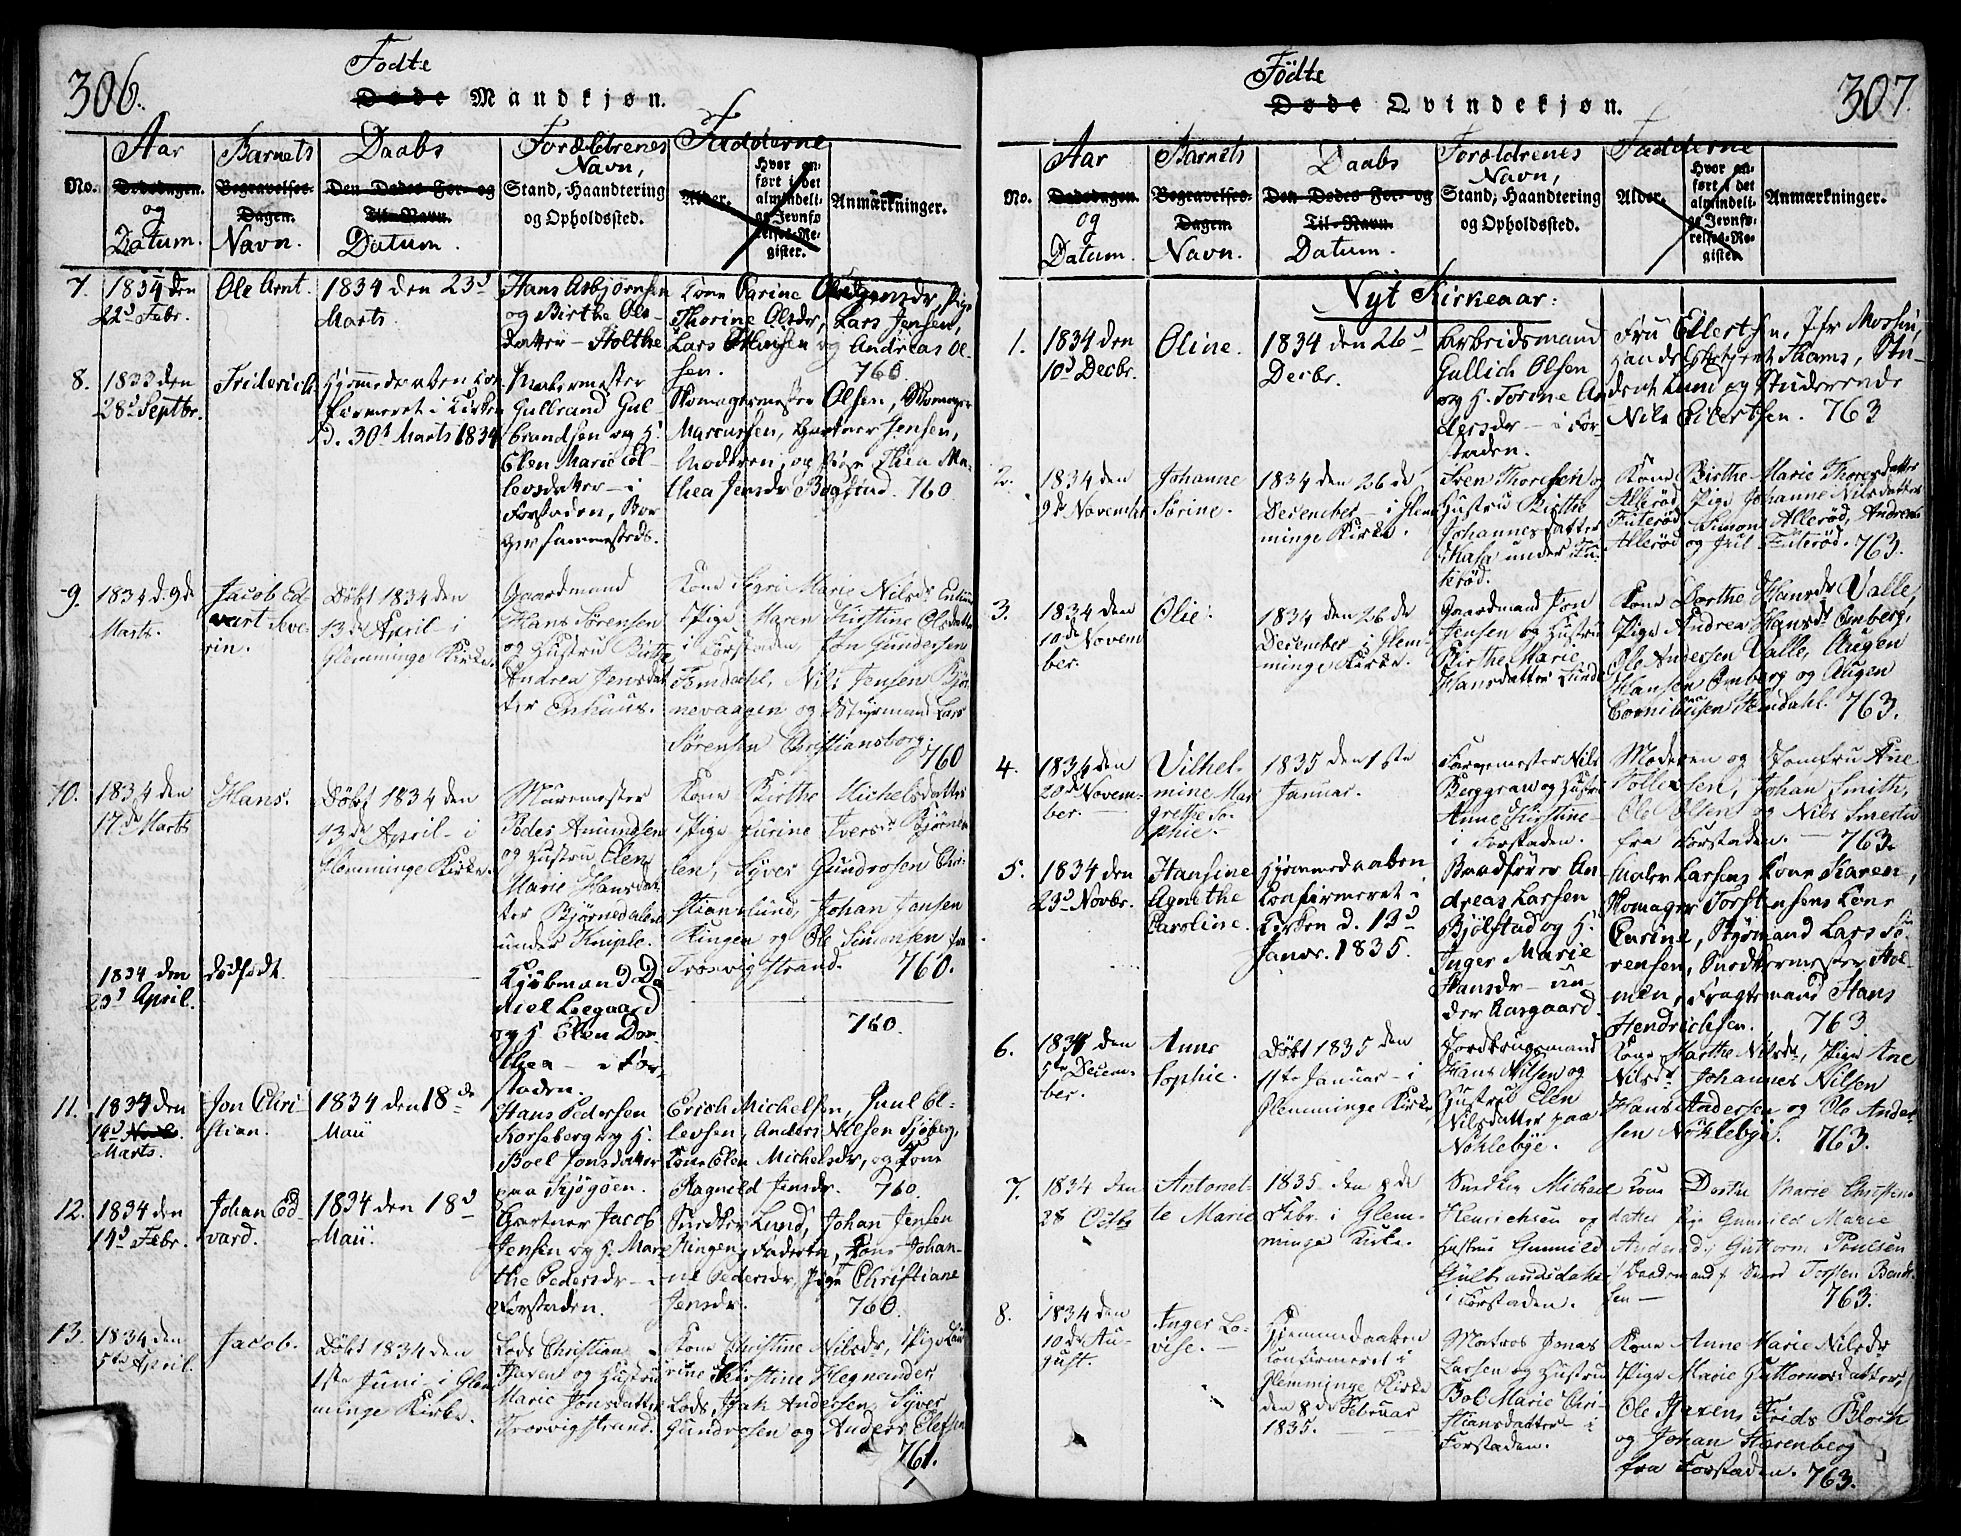 306.
Fødte
Døde Mandkjøn.
No.
Aar
Dødsdagen.
og
Datum.
Barnets
Begravelses-
Dagen.
Navn.
Daabs
Den Dødes For- og
Til-Navn.
Datum.
Forældrenes
Navn,
Stand, Haandtering
og Opholdssted.
Fadderne
Alder.
Hvor an-
ført i det
almindeli-
ge Jevnfø-
relses-Re-
gister.
Anmærkninger.
7.
1834 den
22d Febr.
Ole Arnt.
1834 den 23d
Marts.
Hans Asbjørnsen
og Birthe Ols-
datter - Holthe
Kone Karine
Thorine Olsdr, Lars Jensen,
Lars Hansen og Andreas Ol-
sen.
760
8.
1833 den
28d Septbr.
Friderich
Hjemmedaaben con-
firmeret i Kirken
d. 30d Marts 1834
Malermester
Gulbrand Gul-
brandsen og H.
Elen Marie El-
levsdatter - i
Forstaden, Bor-
ger sammesteds.
Skomagermester Olsen, Skomager
Marcussen, Gartner Jensen,
Moderen, og Pige Thea Ma-
thea Jensdr Bøgsund. 760.
9.
1834 d. 9de
Marts.
Jacob Ed-
vart Seve-
rin.
Døbt 1834 den
13de April - i
Glemminge Kirke.
Gaardmand
Hans Sørensen
og Hustru Birthe
Andrea Jensdat-
ter Enhuus.
Kone Siri Marie Nilsdr Enhuus
Pige Maren Kirstine Olsdatter
i Forstaden, Jon Gundersen
Femdahl, Nils Jensen Bjør-
nevaagen og Styrmand Lars
Sørensen Christiansborg.
760
10.
1834 den
17de Marts
Hans.
Døbt 1834 den
13de April - i
Glemminge Kirke.
Muremester
Peder Amundsen
og Hustru Elen
Marie Hansdat-
ter Bjørnedalen
under Kniple.
Kone Birthe Michelsdatter
Pige Gurine Iversdr Bjørne-
len, Syver Gundrosen Chri-
stianslund, Johan Jensen
Ringen og Ole Simonsen fra
Trosvigstrand. 760.
1834 den
29d April.
dødfødt.
Kjøbmand Da-
niel Leegaard
og H. Elen Dor-
thea - i For-
staden.
760.
11.
1834 den
14d
Marts.
Jon Chri-
stian.
1834 den 18de
Maii
Hans Pedersen
Korseberg og H.
Boel Jonsdatter
paa Kjøgøen.
Erich Michelsen, Juul El-
levsen, Anders Nilsen Sjøberg,
Kone Elen Michelsdr, og Kone
Ragnild Jensdr. 760.
12.
1834 den
14d Febr.
Johan Ed-
vard.
1834 den 18d
Maii.
Gartner Jacob
Jensen og H. Mar-
the Pedersdr - i
Forstaden.
Snedker Lund, Johan Jensen
Ringen, Faderen, Kone Johan-
ne Pedersdr, Pige Christiane
Jensdr.
760.
13.
1834 den
5te April
Jacob.
Døbt 1834 den
1ste Juni - i Glem-
minge Kirke.
Lods Christian
Haxen og Hustru
Marie Jonsdatter
Trosvigstrand.
Kone Christine Nilsdr, Pige
rine Kirstine Hegnander,
Lods Isak Andersen, Syver
Gundrosen og Anders Olefsen
761.
307.
Födte
Døde Qvindekjøn.
No.
Aar
Dødsdagen.
og
Datum.
Barnets
Begravelses-
Dagen.
Navn.
Daabs
Den Dødes For- og
Til-Navn.
Datum.
Forældrenes
Navn,
Stand, Haandtering
og Opholdssted.
Fadderne
Alder.
Hvor an-
ført i det
almindeli-
ge Jevnfø-
relses-Re-
gister.
Anmærkninger.
Nyt Kirkeaar:
1.
1834 den
10d Decbr.
Oline.
1834 den 26d
Decbr.
Arbeidsmand
Gullich Olsen
og H. Torine An-
dersdr - i For-
staden.
Fru Ellertsen, Jfr Mossin,
Handelsbetjent Thams, Stu-
dent Lund og Studerende
Nils Eilertsen. 763
2.
1834 den
9de Novembr
Johanne
Sørine.
1834 den 26de
December - i Glem-
minge Kirke.
Iren Thoresen og
Hustru Birthe
Johannesdatter
under Fu-
terød.
Kone Birthe Marie Thoresdatter
Allerød, Pige Johanne Nilsdatter
Futerød, Simon Allerød, Andreas
Allerød og Juul Futerød. 763.
3.
1834 den
10de Novem-
ber.
Olie.
1834 den 26de
December i Glem-
minge Kirke.
Gaardmand Jon
Jensen og Hustru
Birthe Marie
Hansdatter Lunde
Kone Dorthe Hansdr Valle,
Pige Andrea Hansdr Omberg,
Ole Andersen Valle, Augen
Hansen Omberg og Augen
Corneliusen Femdahl. 763.
4.
1834 den
20de Novem-
ber.
Vilhel-
mine Mar-
grethe So-
phie.
1835 den 1ste
Januar.
Farvemester Nils
Berggraw og Hustru
Anne Kirstine
i Forstaden.
Moderen og Jomfru Ane
Tollersen, Johan Smith,
Ole Olsen og Nils
fra Forstaden. 763.
5.
1834 den
23d Novbr.
Hansine
Agnethe
Caroline.
Hjemmedaaben
Confirmeret i
Kirken d. 13d
Janr. 1835.
Baadfører An-
dreas Larsen
Bjølstad og H.
Inger Marie
Hansdr - un-
der Aasgaard.
Maler Larsens Kone Karen,
Skomager Torstensens Kone
Karine, Styrmand Lars Sø-
rensen, Snedkermester Hol-
men, Fragtemand Hans
Hendrichsen. 763
6.
1834 den
5te Decem-
ber.
Anne
Sophie.
Døbt 1835 den
1ste Januar - i
Glemminge Kirke
Jordbrugsmand
Hans Nilsen og
Hustru Elen
Nilsdatter paa
Nöklebye.
Kone Marthe Nilsdr, Pige Ane
Nilsdr. Johannes Nilsen
Hans Andersen og Ole Ander-
sen Nöklebye. 763.
7.
1834 den
28 Octb
Antonet-
te Marie
1835 den 8de
Febr. i Glem-
minge Kirke.
Snedker Michael
Henrichsen og
Hustrue Gunnild
Gulbrandsdatter
i Forstaden.
Kone Dorthe Marie Christens-
datter, Pige Gunnild Marie
Andersdr, Guttorm Poulsen
Torsten Bendt-
sen -
763.
8.
1834 den
10de Au-
gust.
Inger Lo-
vise.
Hjemmedaaben
confirmeret i
Glemminge Kirke
den 8de Februar
1835.
Matros Jonas
Larsen og Hustru
Bol Marie Chri-
stiansdatter - i
Forstaden.
Kone Anne Marie Nilsdr
Pige Marie Guttormsdatter,
Ole Haxen, Frids Bloch
og Johan Harenberg
fra Forstaden. 763.